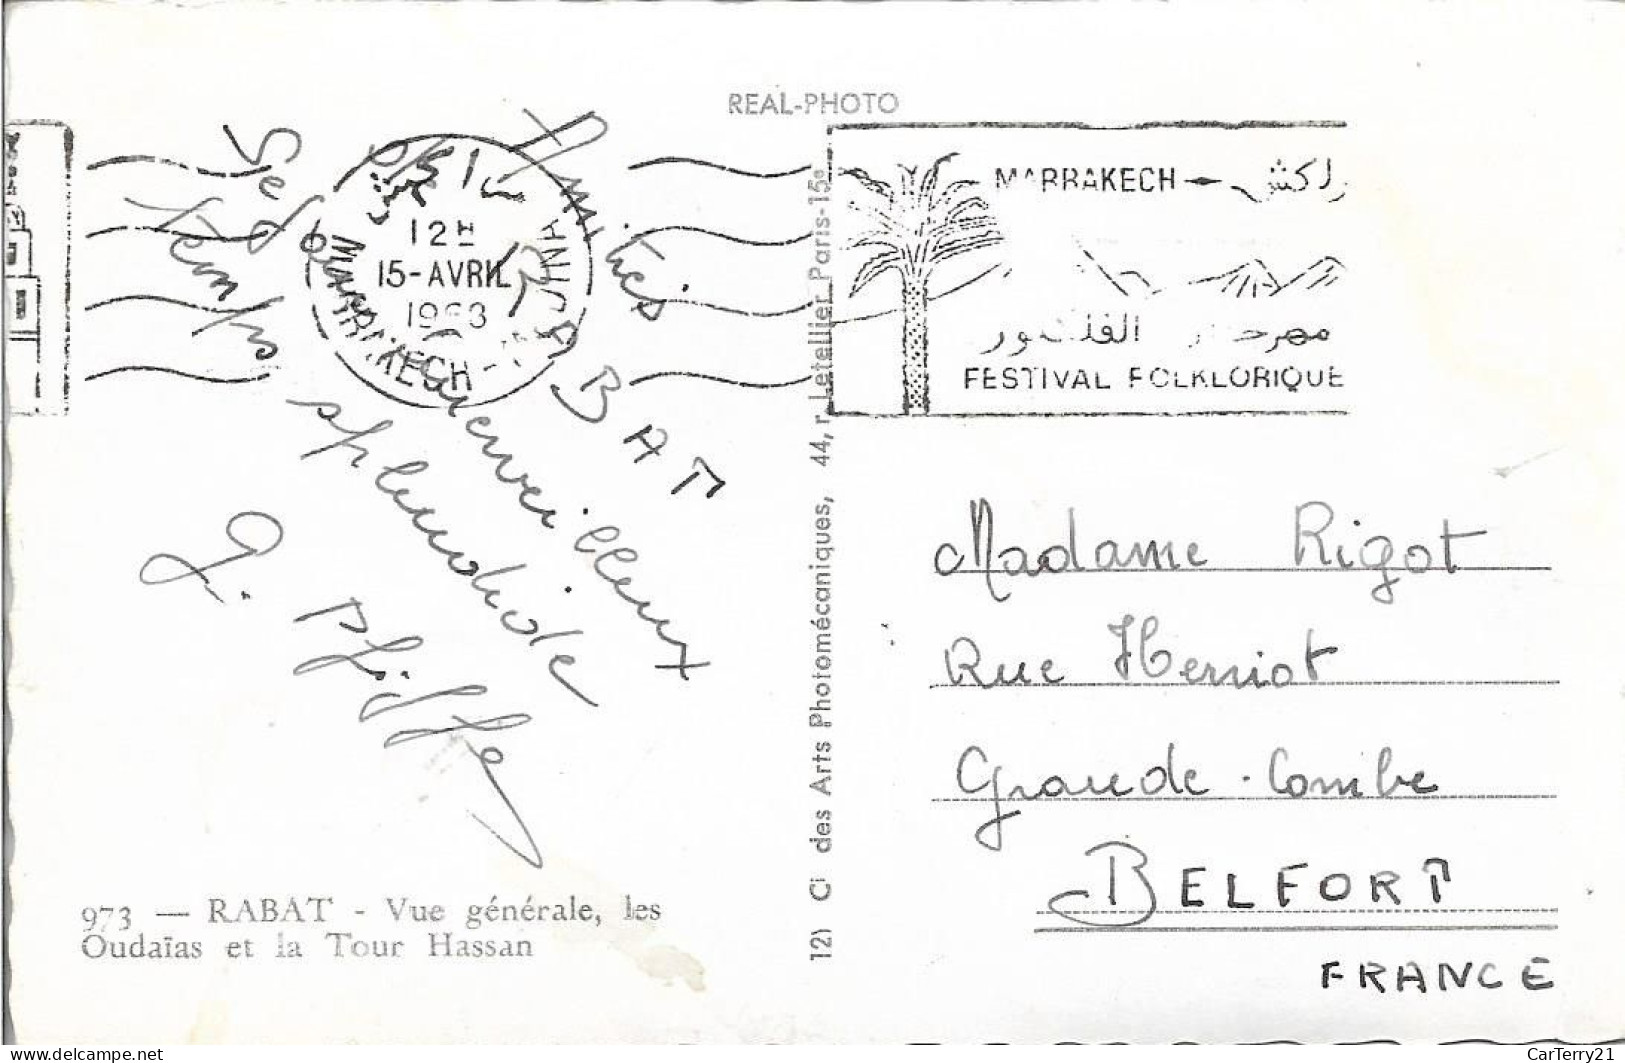 REAL-PHOTO
MARRAKECH
مراكش
12H
15-AVRIL
MARRAKECH - MEDINA
مهرجان الفلكلور
FESTIVAL FOLKLORIQUE
Amitiés
RABAT
merveilleux
Temps splendide
G.
12) Ci des Arts Photomécaniques, 44, r. Letellier Paris-15e
Madame Rigot
Rue Herriot
Grande-Combe
BELFORT
FRANCE
973 — RABAT - Vue générale, les
Oudaïas et la Tour Hassan
CarTerry21